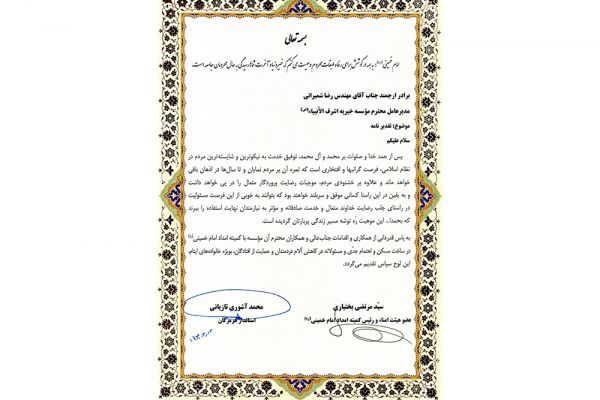 بسمه تعالی
امام خمینی(ره): به همه در کوشش برای رفاه طبقات محروم وصیت می کنم که خیر دنیا و آخرت شماها رسیدگی به حال محرومان جامعه است.
برادر ارجمند جناب آقای مهندس رضا شمیرانی
مدیرعامل محترم مؤسسه خیریه اشرف الأنبیاء(ص)
موضوع: تقدیر نامه
سلام علیکم
پس از حمد خدا و صلوات بر محمد و آل محمد، توفیق خدمت به نیکوترین و شایسته‌ترین مردم در
نظام اسلامی، فرصت گرانبها و افتخاری است که ثمره آن بر مردم نمایان و تا سال‌ها در اذهان باقی
خواهد ماند و علاوه بر خشنودی مردم، موجبات رضایت پروردگار متعال را در پی خواهد داشت
و به یقین در این راستا کسانی موفق و سربلند خواهند بود که بتوانند به خوبی از این فرصت مسئولیت
در راستای جلب رضایت خداوند متعال و خدمت صادقانه و مؤثر به نیازمندان نهایت استفاده را ببرند
که بحمدا... این موهبت ره توشه مسیر زندگی پربارتان گردیده است.
به پاس قدردانی از همکاری و اقدامات جناب‌عالی و همکاران محترم آن مؤسسه با کمیته امداد امام خمینی(ره)
در ساخت مسکن و اهتمام جدّی و مسئولانه در کاهش آلام دردمندان و حمایت از افتادگان، بویژه خانواده‌های ایتام،
این لوح سپاس تقدیم می‌گردد.
سیّد مرتضی بختیاری
عضو هیئت امناء و رئیس کمیته امداد امام خمینی(ره)
محمد آشوری تازیانی
استاندار هرمزگان